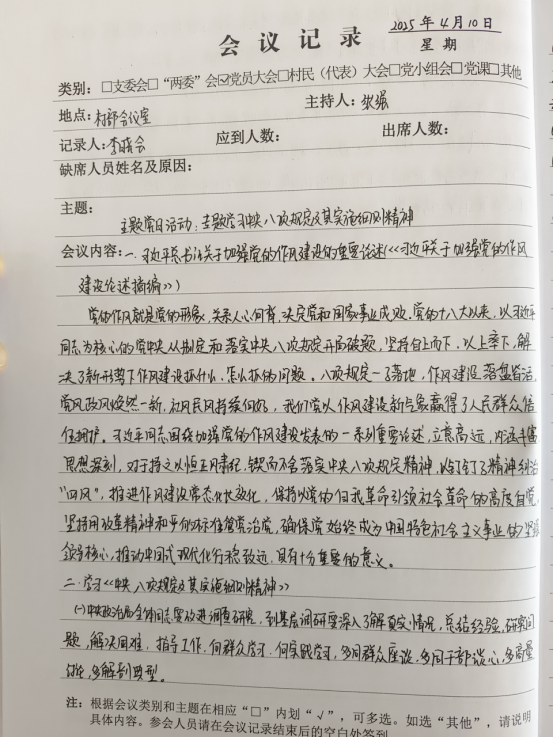 会议记录
2025年4月10日
星期
类别：□支委会□“两委”会☑党员大会□村民（代表）大会□党小组会□党课□其他
地点：村部会议室
主持人：张强
记录人：李晓会
应到人数：
出席人数：
缺席人员姓名及原因：
主题：
主题党日活动：专题学习中央八项规定及其实施细则精神
会议内容：一、习近平总书记关于加强党的作风建设的重要论述(《习近平关于加强党的作风
建设论述摘编》)
党的作风就是党的形象，关系人心向背，决定党和国家事业成败。党的十八大以来，以习近平
同志为核心的党中央从制定和落实中央八项规定开局破题，坚持自上而下、以上率下，解
决了新形势下作风建设抓什么、怎么抓的问题。八项规定一子落地，作风建设满盘皆活，
党风政风焕然一新，社风民风持续向好，我们党以作风建设新气象赢得了人民群众信
任拥护。习近平同志围绕加强党的作风建设发表的一系列重要论述，立意高远，内涵丰富
思想深刻，对于持之以恒正风肃纪，锲而不舍落实中央八项规定精神，以钉钉子精神纠治
“四风”，推进作风建设常态化长效化，保持以党的自我革命引领社会革命的高度自觉，
坚持用改革精神和严的标准管党治党，确保党始终成为中国特色社会主义事业的坚强
领导核心，推动中国式现代化行稳致远，具有十分重要的意义。
二、学习《中央八项规定及其实施细则精神》
(一)中央政治局全体同志要改进调查研究，到基层调研要深入了解真实情况，总结经验，研究问
题，解决困难，指导工作，向群众学习，向实践学习，多同群众座谈，多同干部谈心，多商量
讨论，多解剖典型。
注：根据会议类别和主题在相应“□”内划“√”，可多选。如选“其他”，请说明
具体内容。参会人员请在会议记录结束后的空白处签到